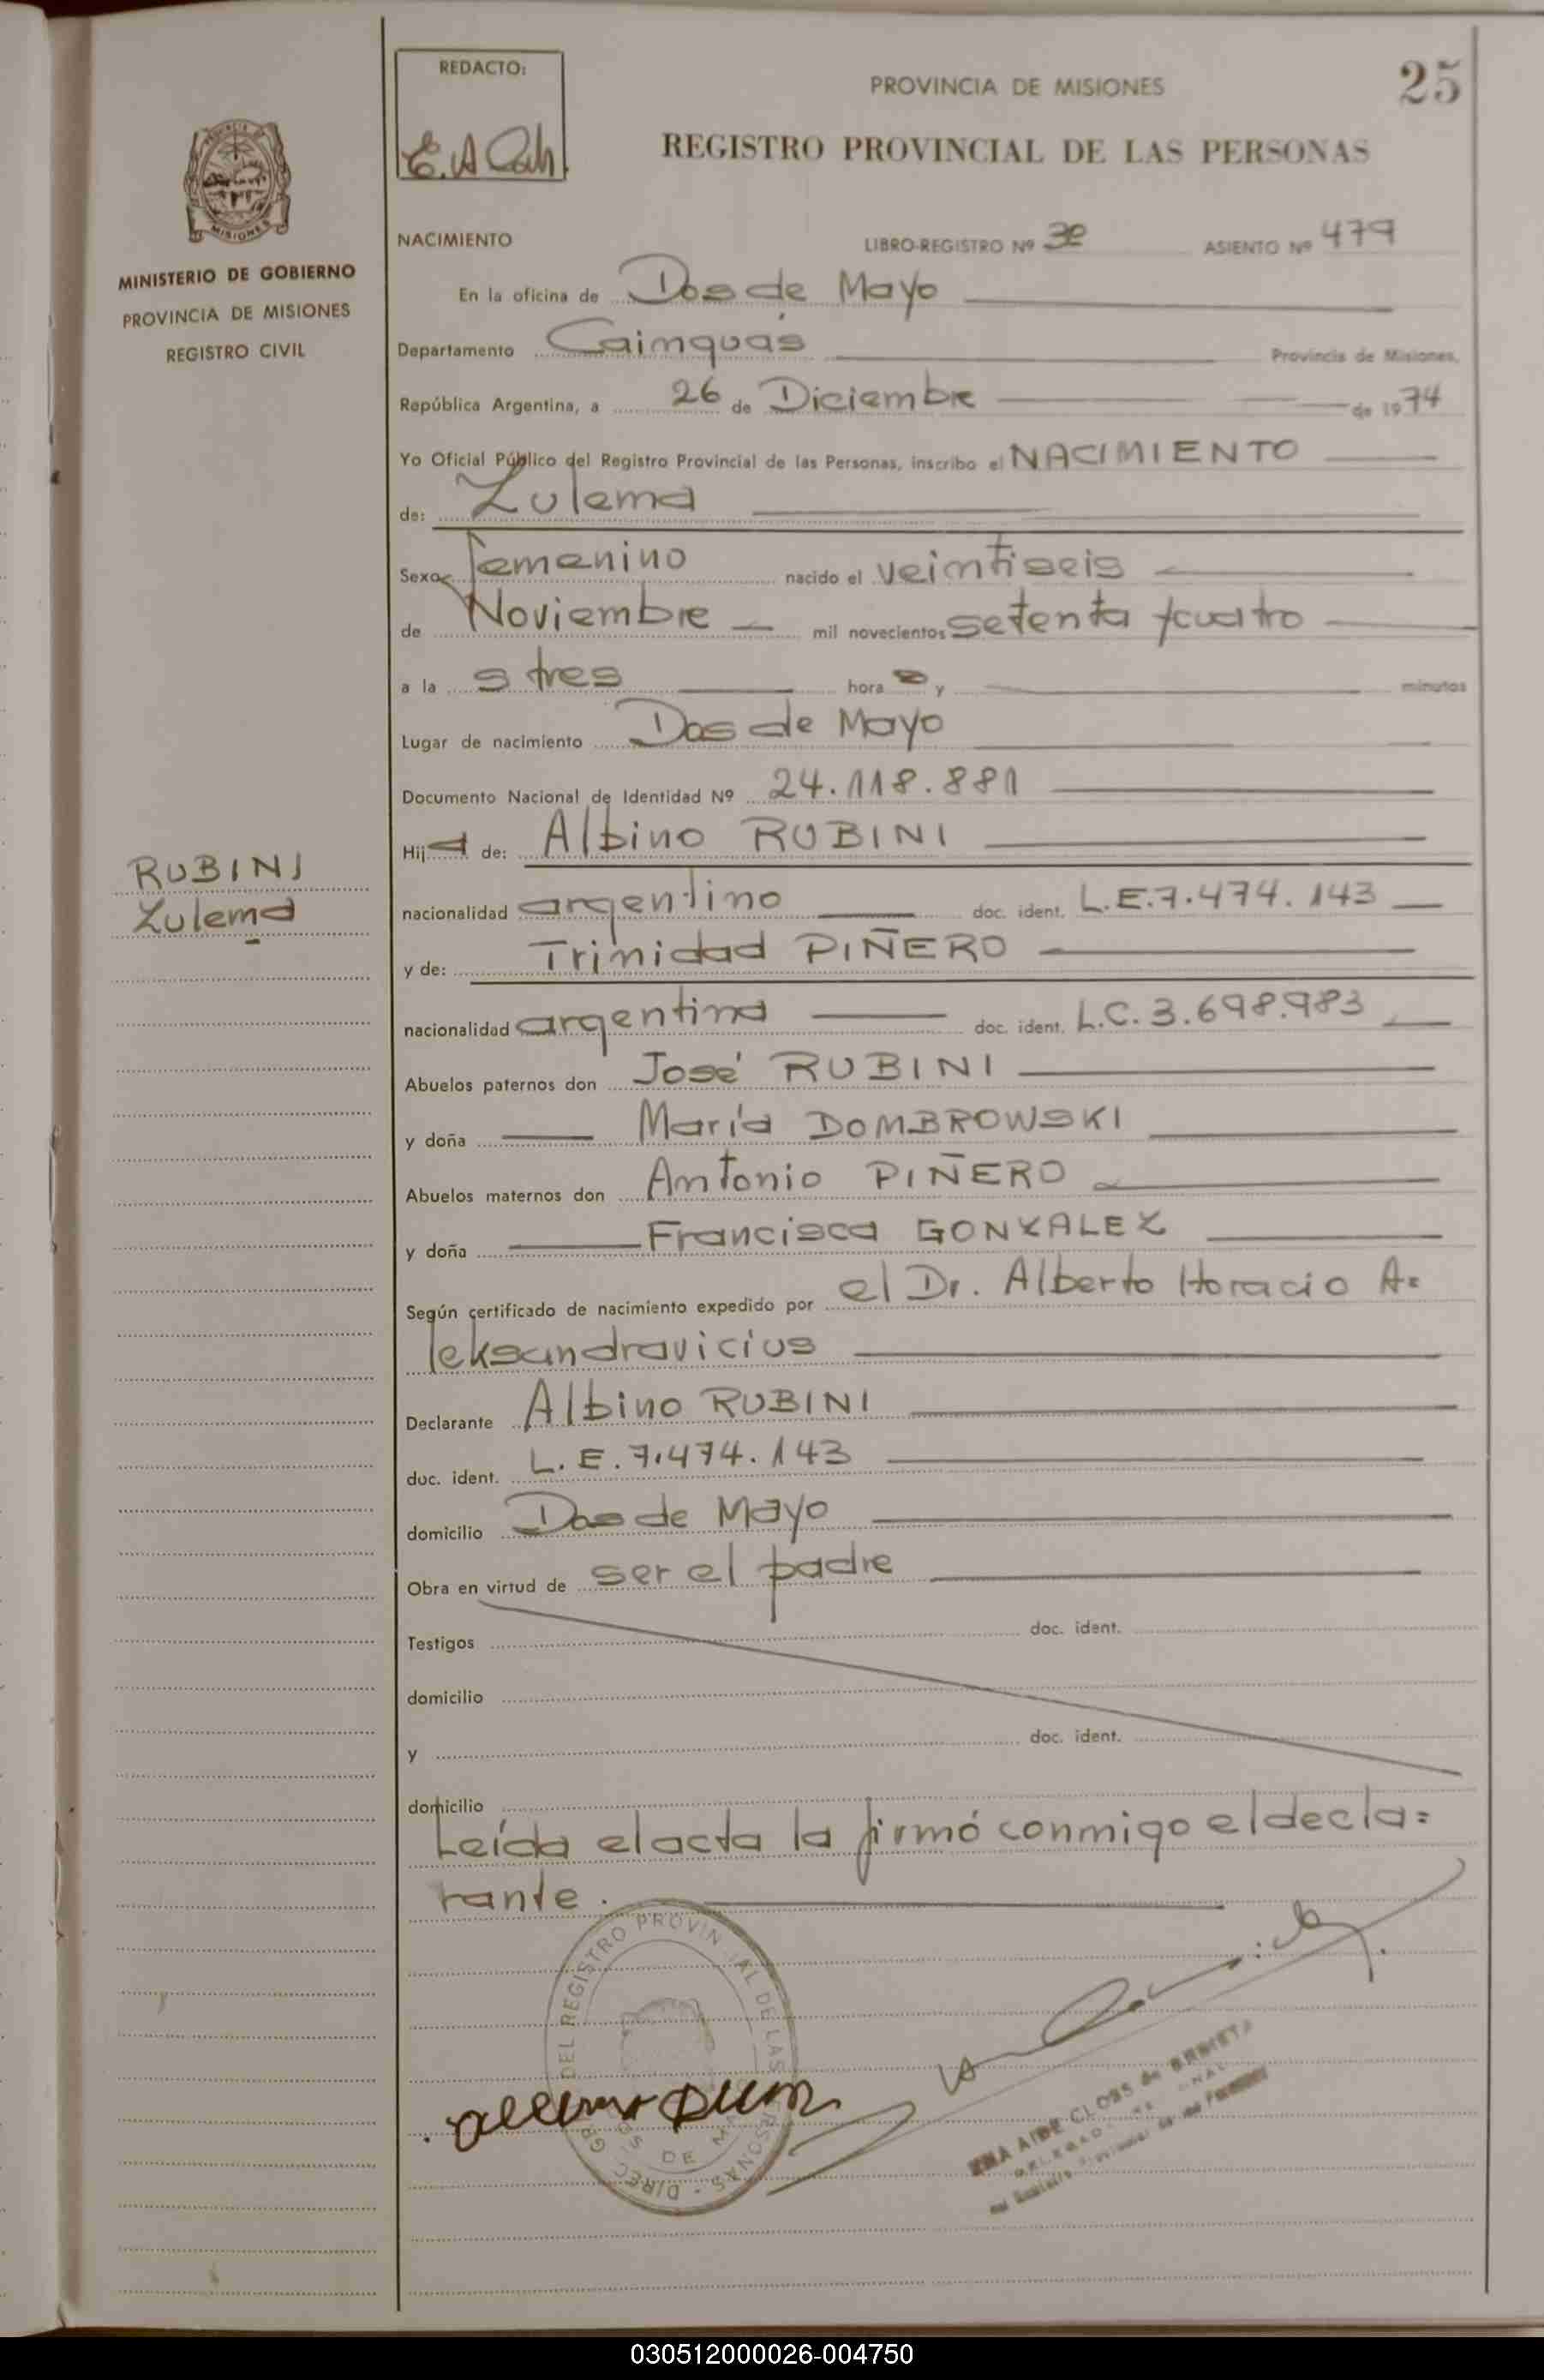 REDACTO:
PROVINCIA DE MISIONES
25
REGISTRO PROVINCIAL DE LAS PERSONAS
MISIONES
MINISTERIO DE GOBIERNO
PROVINCIA DE MISIONES
REGISTRO CIVIL
NACIMIENTO LIBRO-REGISTRO Nº 3º ASIENTO Nº 479
En la oficina de Dos de Mayo
Departamento Cainguás Provincia de Misiones,
República Argentina, a 26 de Diciembre de 1974
Yo Oficial Público del Registro Provincial de las Personas, inscribo el NACIMIENTO
de: Zulema
Sexo femenino nacido el veintiseis
de Noviembre mil novecientos setenta y cuatro
a la s tres hora s y minutos
Lugar de nacimiento Dos de Mayo
Documento Nacional de Identidad Nº 24.118.881
Hija de: Albino RUBINI
RUBINI
Zulema
nacionalidad argentino doc. ident. L.E.7.474.143
y de: Trinidad PIÑERO
nacionalidad argentina doc. ident. L.C. 3.698.983
Abuelos paternos don José RUBINI
y doña María DOMBROWSKI
Abuelos maternos don Antonio PIÑERO
y doña Francisca GONZALEZ
Según certificado de nacimiento expedido por el Dr. Alberto Horacio A=
leksandravicius
Declarante Albino RUBINI
doc. ident. L.E.7.474.143
domicilio Dos de Mayo
Obra en virtud de ser el padre
Testigos doc. ident.
domicilio
y doc. ident.
domicilio
Leída el acta la firmó conmigo el decla=
rante.
DEL REGISTRO PROVINCIAL DE LAS PERSONAS - DIREC. GRAL.
AIDE CLOSS de
030512000026-004750